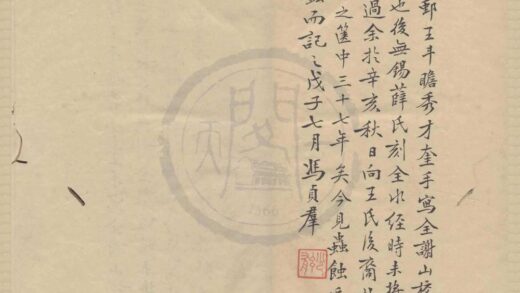 鄞王斗瞻秀才奎手寫全謝山校
也後無錫薛氏刻全水經時未據
過余於辛亥秋日向王氏後裔
之篋中三十七年矣今見蟲蝕
而記之戊子七月馮貞羣
天一閣
1566